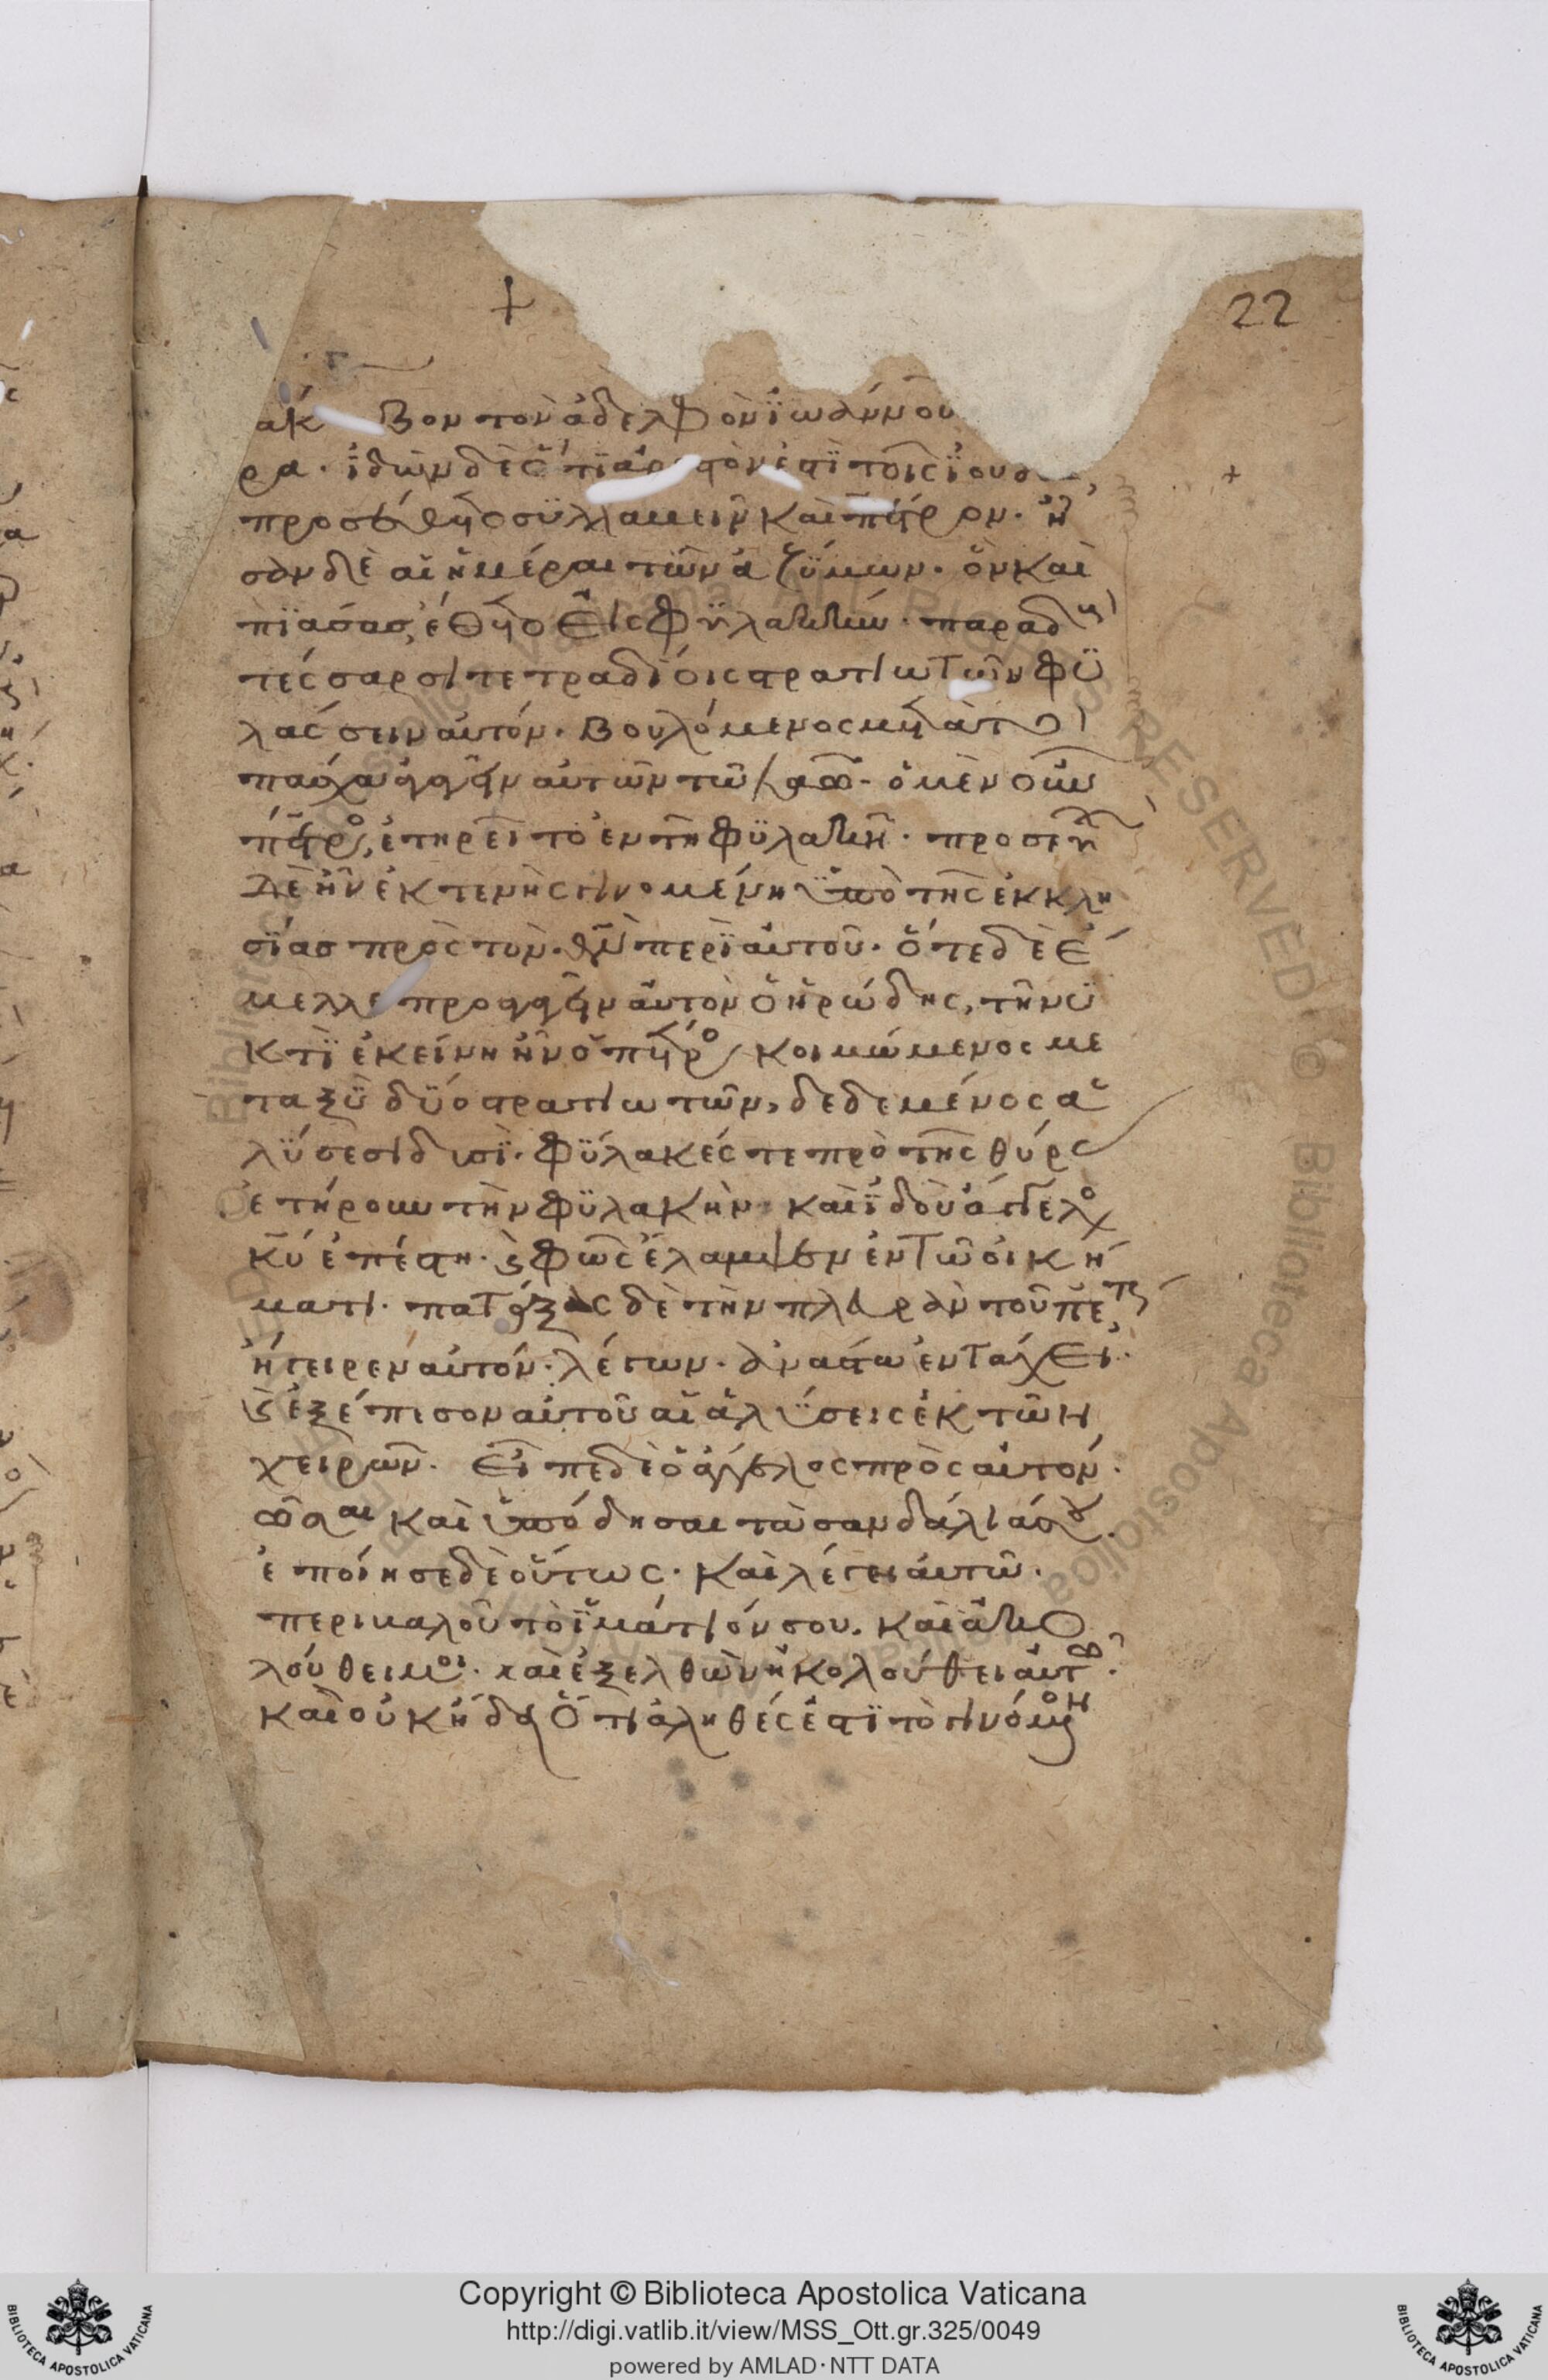 22
ακ βον τὸν ἀδελφὸν ἰωάννου
ρα. ἰδὼν δὲ ὅτι ἀρεστὸν ἐστὶ τοῖς ἰουδ
προσέθετο συλλαβεῖν καὶ πέτρον. ἦ
σαν δὲ αἱ ἡμέραι τῶν ἀζύμων. ὃν καὶ
πιάσας, ἔθετο εἰς φυλακὴν. παραδ
τέσσαρσι τετραδίοις στρατιωτῶν φυ
λάσσειν αὐτόν. βουλόμενος μετὰ το
πάσχα ἀγαγεῖν αὐτὸν τῷ λαῷ. ὁ μὲν οὖν
πέτρος, ἐτηρεῖτο ἐν τῇ φυλακῇ. προσευχὴ
δὲ ἦν ἐκτενὴς γινομένη ὑπὸ τῆς ἐκκλη
σίας πρὸς τὸν θν περὶ αὐτοῦ. ὅτε δὲ ἔ
μελλε προαγαγεῖν αὐτὸν ὁ ἡρώδης, τῇ νυ
κτὶ ἐκείνη ἦν ὁ πέτρος κοιμώμενος με
ταξὺ δύο στρατιωτῶν, δεδεμένος ἁ
λύσεσι δυσί. φύλακές τε πρὸ τῆς θύρας
ἐτήρουν τὴν φυλακήν. καὶ ἰδοὺ ἄγγελος
κυ ἐπέστη. καὶ φῶς ἔλαμψεν ἐν τῷ οἰκή
ματι. πατάξας δὲ τὴν πλευρὰν τοῦ πέτρου,
ἤγειρεν αὐτόν. λέγων. ἀνάστα ἐν τάχει.
καὶ ἐξέπεσον αὐτοῦ αἱ ἁλύσεις ἐκ τῶν
χειρῶν. εἶπε δὲ ὁ ἄγγελος πρὸς αὐτόν.
ζῶσαι καὶ ὑπόδησαι τὰ σανδάλιά σου.
ἐποίησε δὲ οὕτως. καὶ λέγει αὐτῷ.
περιβαλοῦ τὸ ἱμάτιόν σου. καὶ ἀκο
λούθει μοι. καὶ ἐξελθὼν ἠκολούθει αὐτῷ.
καὶ οὐκ ᾔδει ὅτι ἀληθές ἐστὶ τὸ γινόμενον
Copyright © Biblioteca Apostolica Vaticana
http://digi.vatlib.it/view/MSS_Ott.gr.325/0049
powered by AMLAD·NTT DATA
BIBLIOTECA APOSTOLICA VATICANA
BIBLIOTECA APOSTOLICA VATICANA